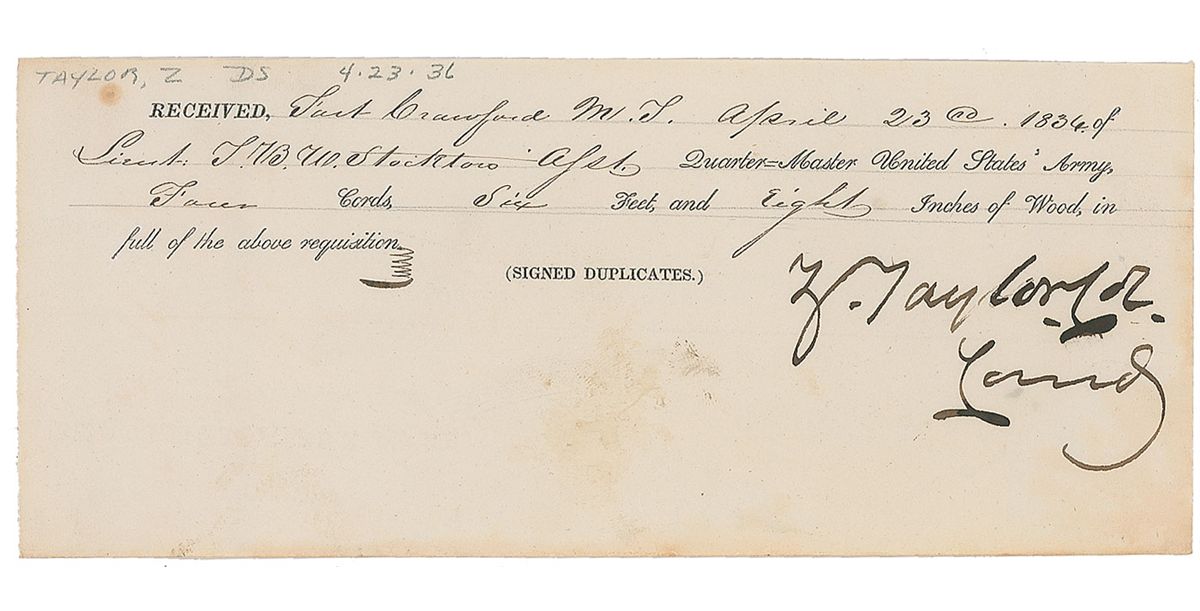 TAYLOR, Z DS 4.23.36
RECEIVED, Fort Crawford M.T. April 23d. 1836. of
Lieut. T. B. W. Stockton Asst. Quarter=Master United States' Army,
Four Cords, Six Feet, and Eight Inches of Wood, in
full of the above requisition.
(SIGNED DUPLICATES.)
Z. Taylor Col.
Comd